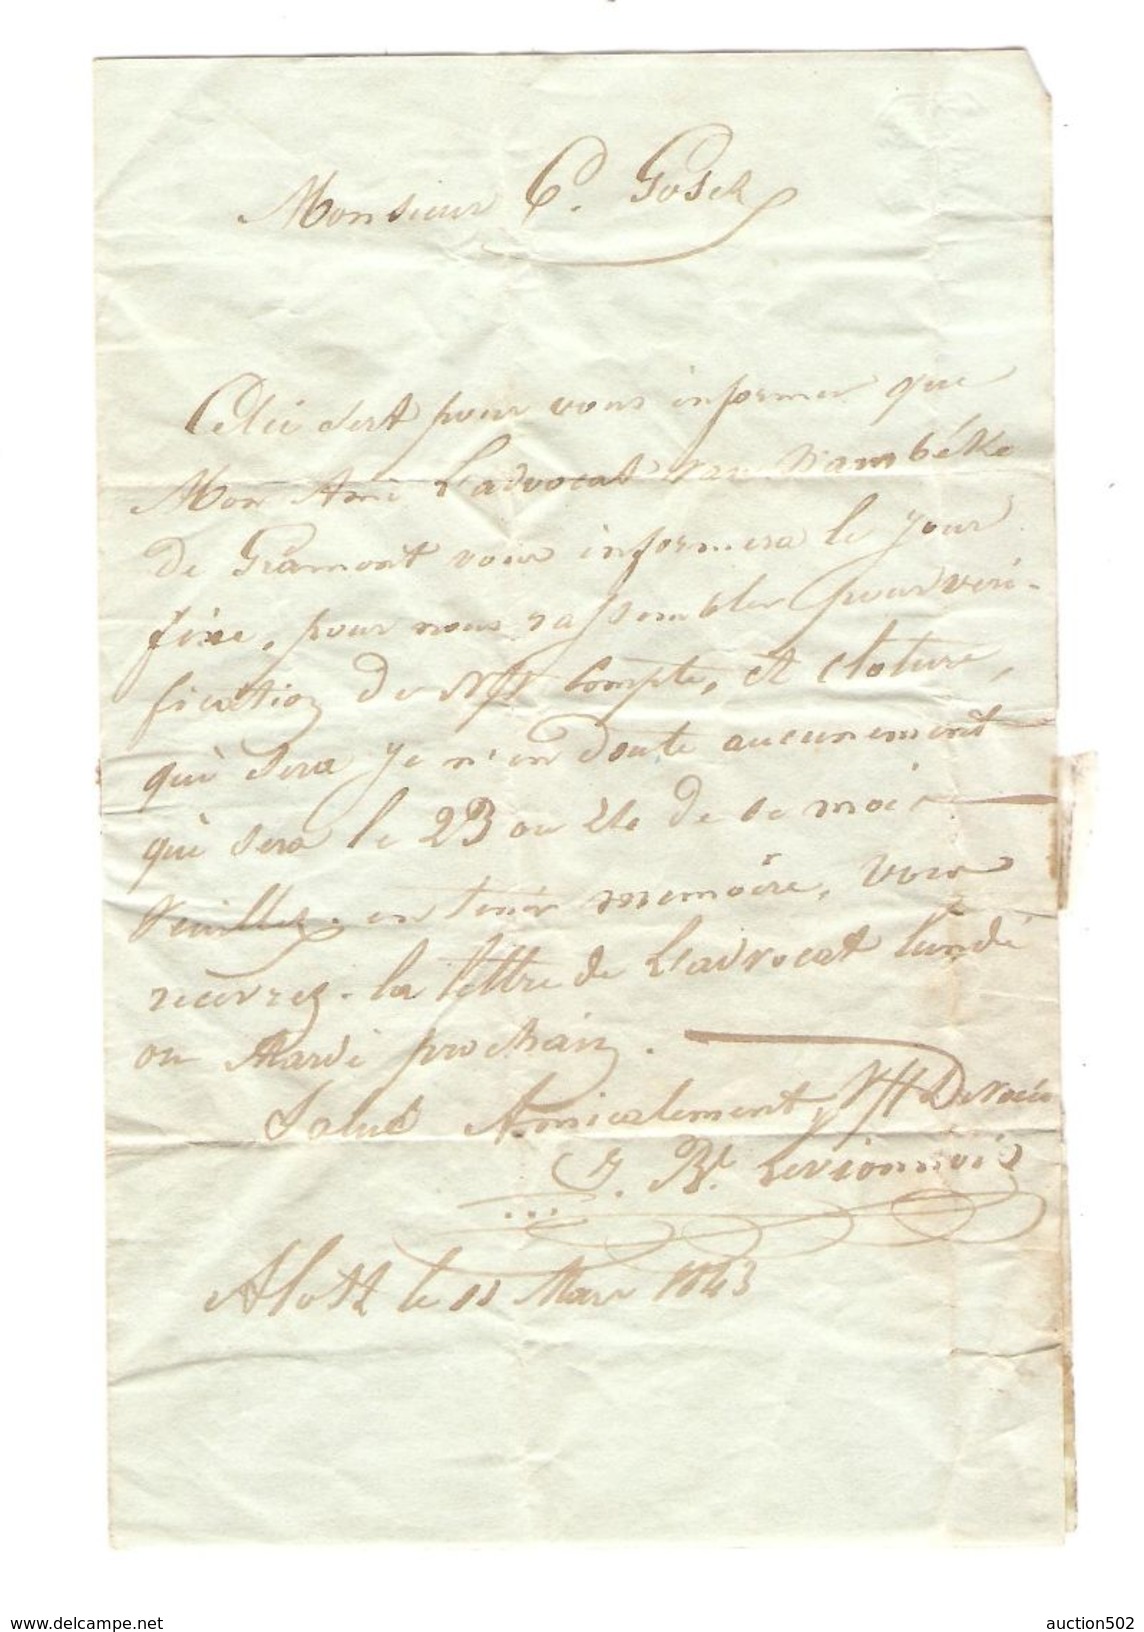 Monsieur C. Gosch
Celui sert pour vous informer que
Mon Ami L'advocat van Wambéke
de Gramont vous informera le jour
fixe, pour nous rassembler pour veri-
fication de compte, et cloture,
qui sera je n'en doute aucunement
qui sera le 23 ou 24 de ce mois
veuillez en tenir memoire, vous
recevrez la lettre de L'advocat lundi
ou Mardi prochain.
Salue Amicalement
J. Bt. Levionnois
Alost le 11 Mars 1843
delcampe.net
auction502